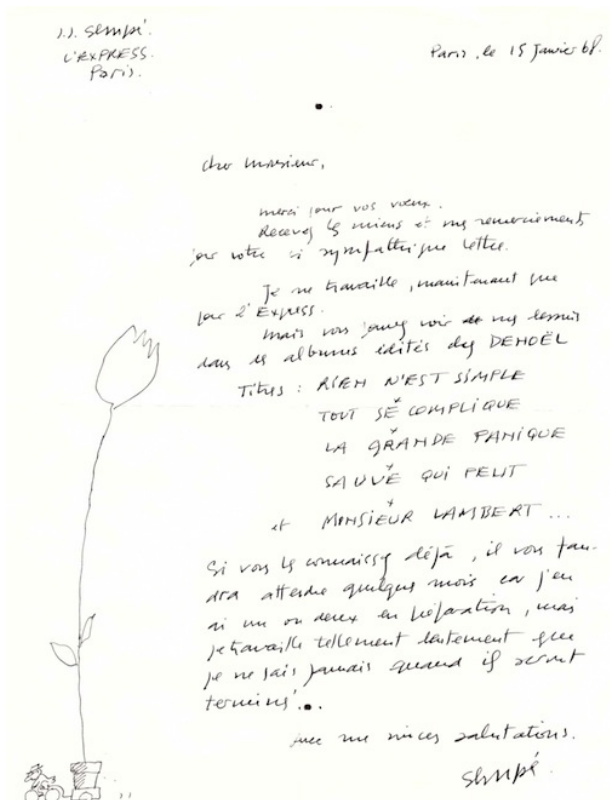 J.J. Sempé.
L'EXPRESS.
Paris.
Paris, le 15 Janvier 68.
cher monsieur,
merci pour vos vœux.
Recevez les miens et mes remerciements
pour votre si sympathique lettre.
Je ne travaille, maintenant que
pour l'Express.
Mais vous pouvez voir mes dessins
dans les albums édités chez DENOËL
Titres : RIEN N'EST SIMPLE
TOUT SE COMPLIQUE
LA GRANDE PANIQUE
SAUVE QUI PEUT
et MONSIEUR LAMBERT...
Si vous les connaissez déjà, il vous fau-
dra attendre quelques mois car j'en
ai un ou deux en préparation, mais
je travaille tellement lentement que
je ne sais jamais quand ils seront
terminés.
avec mes sincères salutations.
Sempé.